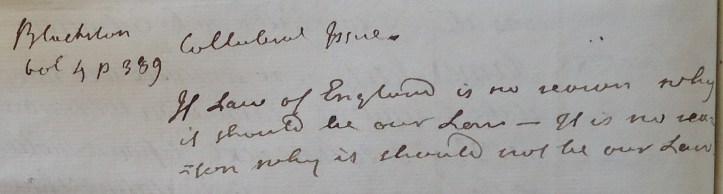 Blackston
vol 4 p 389
Collateral Issue.
If Law of England is no reason why
it should be our Law - It is no rea=
=son why it should not be our Law